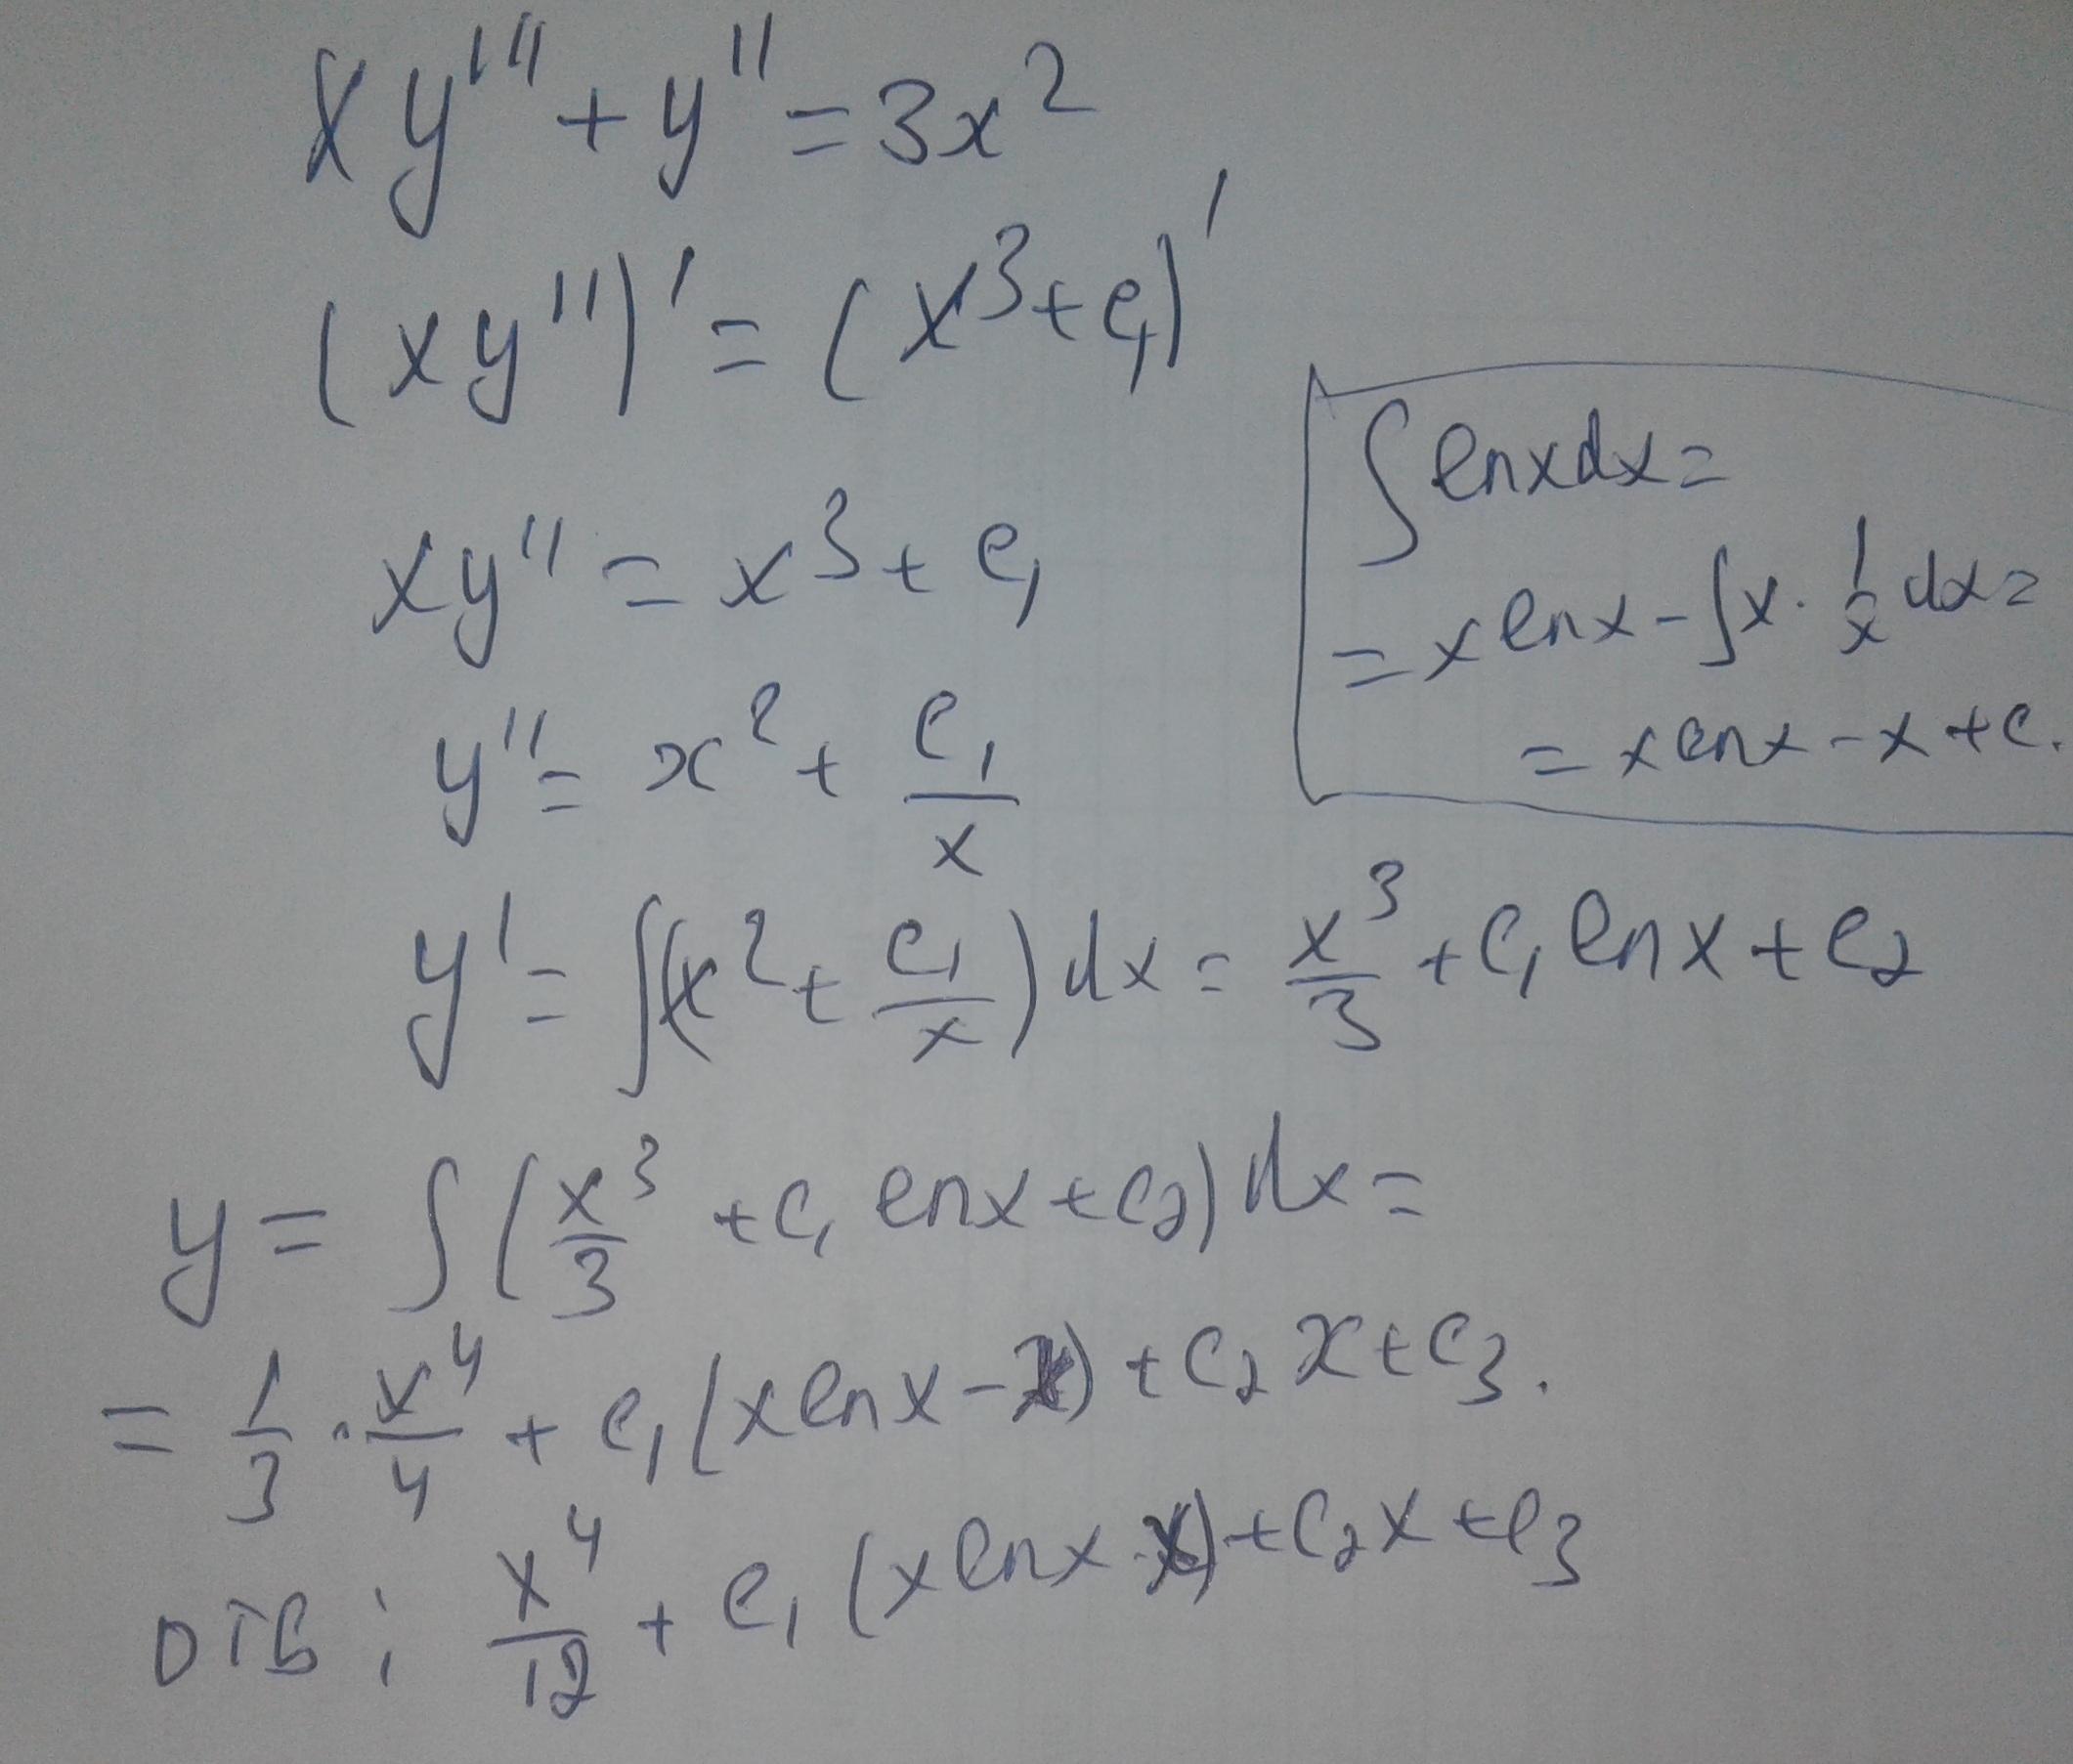 xy''' + y'' = 3x²
(xy'')' = (x³ + c₁)'
xy'' = x³ + c₁
y'' = x² + c₁/x
y' = ∫(x² + c₁/x) dx = x³/3 + c₁ ln x + c₂
∫ ln x dx =
= x ln x - ∫ x · 1/x dx =
= x ln x - x + c.
y = ∫ (x³/3 + c₁ ln x + c₂) dx =
= 1/3 · x⁴/4 + c₁ (x ln x - x) + c₂ x + c₃.
отв: x⁴/12 + c₁ (x ln x - x) + c₂ x + c₃